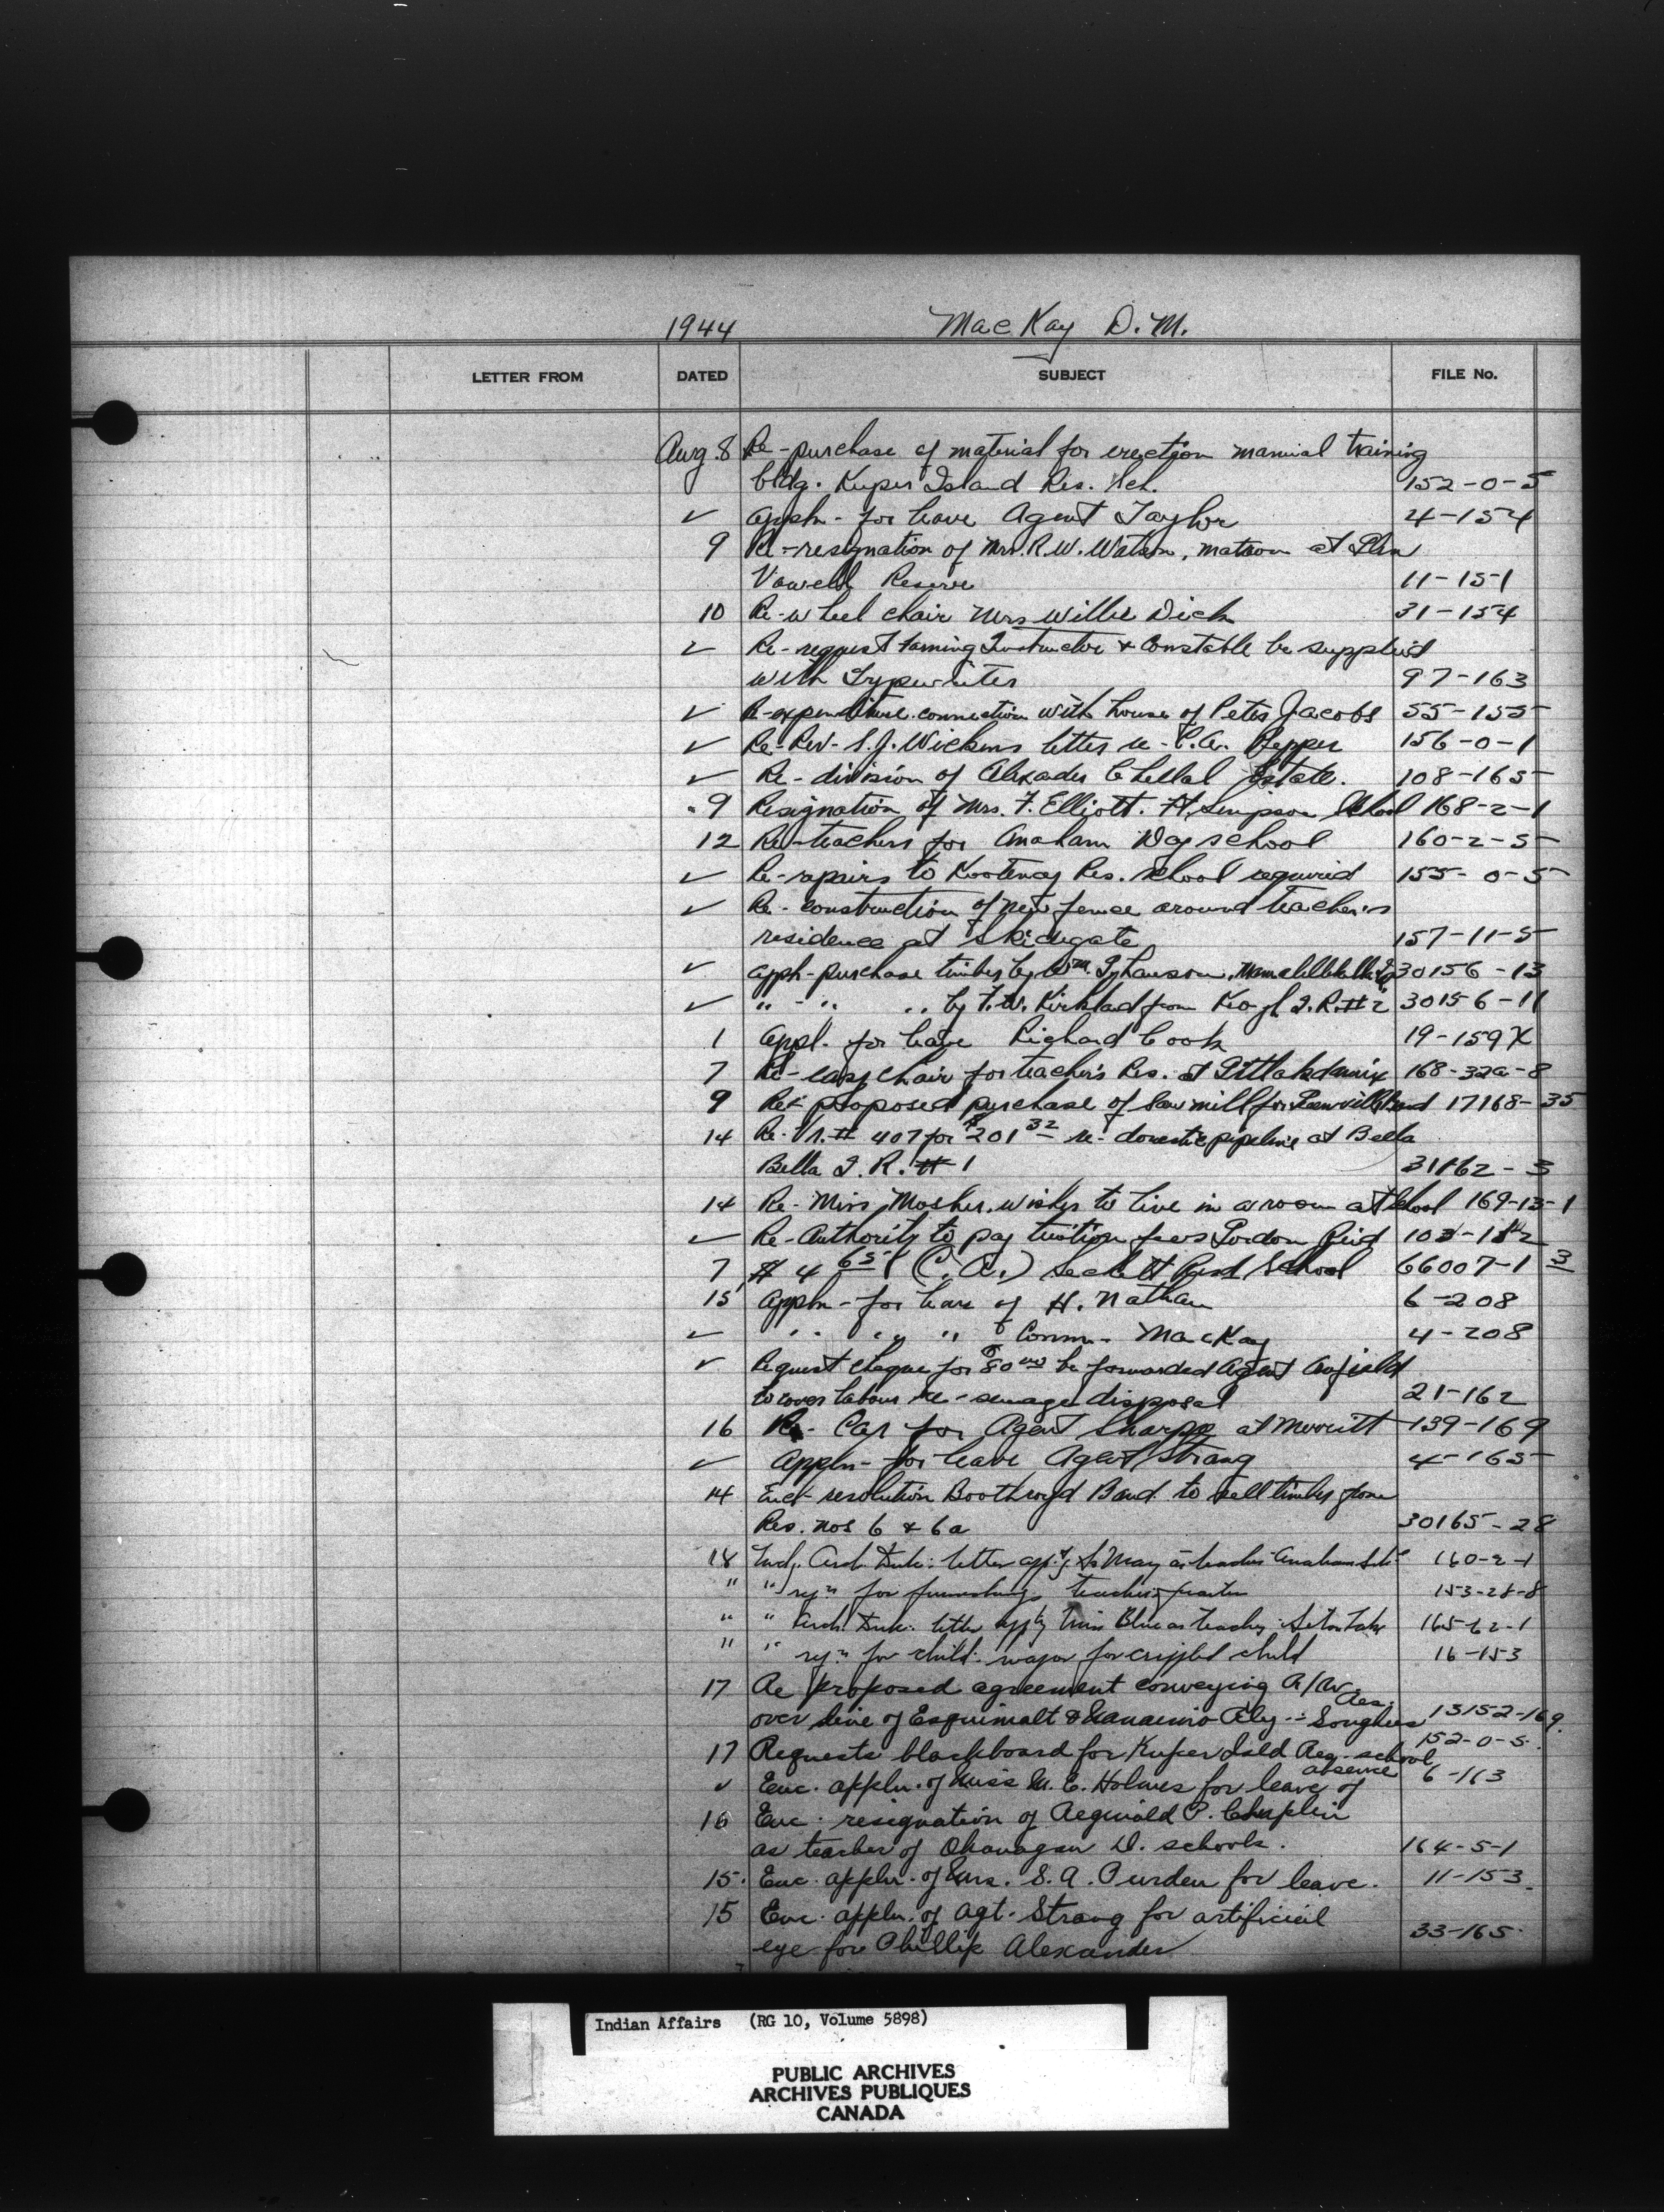 1944 MacKay D. M.
LETTER FROM DATED SUBJECT FILE No.
Aug. 8 Re-purchase of material for erection manual training
bldg. Kuper Island Res. Sch. 152-0-5
✓ appln- for leave Agent Taylor 4-154
9 Re-resignation of Mrs. R. W. Watson, matron at
Vowell Reserve 11-151
10 Re-wheel chair Mrs Willie Dick 31-154
✓ Re-request farming Instructor & Constable be supplied
with Typewriter 97-163
✓ Re-expenditure connection with house of Peter Jacobs 55-155
✓ Re-Rev- S. J. Wickens letter re- C. A. Pepper 156-0-1
✓ Re-division of Alexader Estate. 108-165
9 Resignation of Mrs. F. Elliott. Ft. Simpson School 168-2-1
12 Re-teachers for Anaham Day school 160-2-5
✓ Re-repairs to Kootenay Res. School required 155-0-5
✓ Re-construction of new fence around teacher's
residence at Skidegate 157-11-5
✓ appln-purchase timber by Wm. 30156-13
✓ " - " " by F. W. Kirkland from I. R. # 2 30156-11
1 appl. for leave Richard Cook 19-159X
7 Re-easy chair for teacher's Res. at Gitlakdamix 168-32a-8
9 Re proposed purchase of Saw mill for Band 17168-35
14 Re. # 407 for $201 32 re-domestic pipeline at Bella
Bella I. R. # 1 31162-3
14 Re-Miss Mosher, wishes to live in a room at School 169-13-1
✓ Re-Authority to pay tuition fees Gordon Reid
7 # 4 65 (C. A.) Sechelt Res School 66007-1 3
15 appln-for leave of H. Nathan 6-208
✓ " " " " Comm- MacKay 4-208
✓ Request cheque for $80 00 be forwarded Agent Anfield
to cover labour re-sewage disposal 21-162
16 Re- Car for Agent Sharpe at Merritt 139-169
✓ Appln- for leave Agent Strang 4-165
14 Encl- resolution Boothroyd Band to sell timber from
Res. nos 6 & 6a 30165-28
18 Duke: letter Sr May as teacher Anaham 160-2-1
" " for furnishings teacher's quarters 153-28-8
" " Arch. Duke: letter Miss Blue as teacher Seton Lake 165-62-1
" " for child's wagon for crippled child 16-153
17 Re proposed agreement conveying R/W
over line of Esquimalt & Nanaimo Rly - Songhees Res. 13152-169.
17 Requests blackboard for Kuper Isld Res. school 152-0-5.
✓ Enc. appln. of Miss M. E. Holmes for leave of absence 6-163
16 Enc. resignation of Reginald P. Chaplin
as teacher of Okanagan D. schools. 164-5-1
15. Enc. appln. of Mrs. S. A. Purden for leave. 11-153.
15 Enc. appln. of Agt. Strang for artificial
eye for Phillip Alexander 33-165.
Indian Affairs (RG 10, Volume 5898)
PUBLIC ARCHIVES
ARCHIVES PUBLIQUES
CANADA